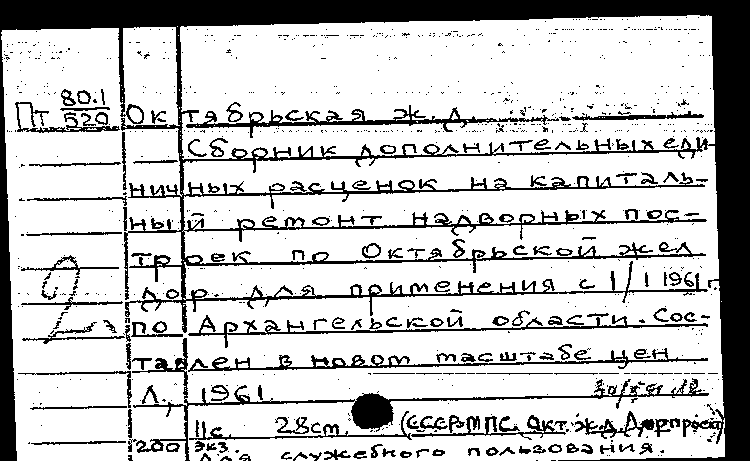 Пт 80.1/520 Октябрьская ж. д.
Сборник дополнительных еди-
ничных расценок на капиталь-
ный ремонт надворных пос-
троек по Октябрьской жел
дор. для применения с 1/I 1961 г.
2 по Архангельской области. Сос-
тавлен в новом масштабе цен
Л., 1961.
11с. 28cm. (СССР. МПС. Окт. ж.д. Дорпроект)
200 экз.
Для служебного пользования.